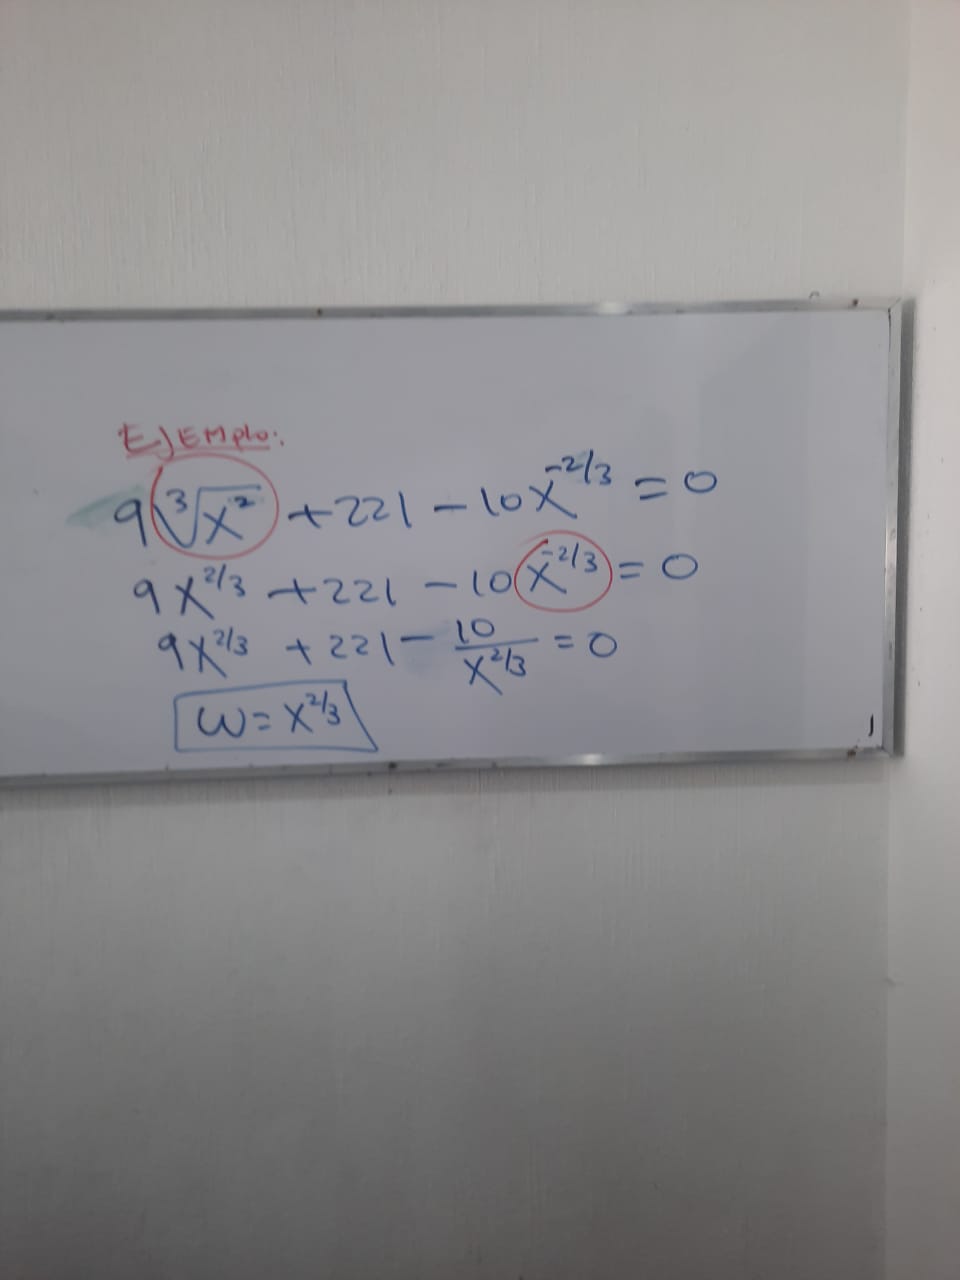 EJEMPlo:
9∛x² + 221 - 10x^-2/3 = 0
9x^2/3 + 221 - 10x^-2/3 = 0
9x^2/3 + 221 - 10/x^2/3 = 0
w = x^2/3